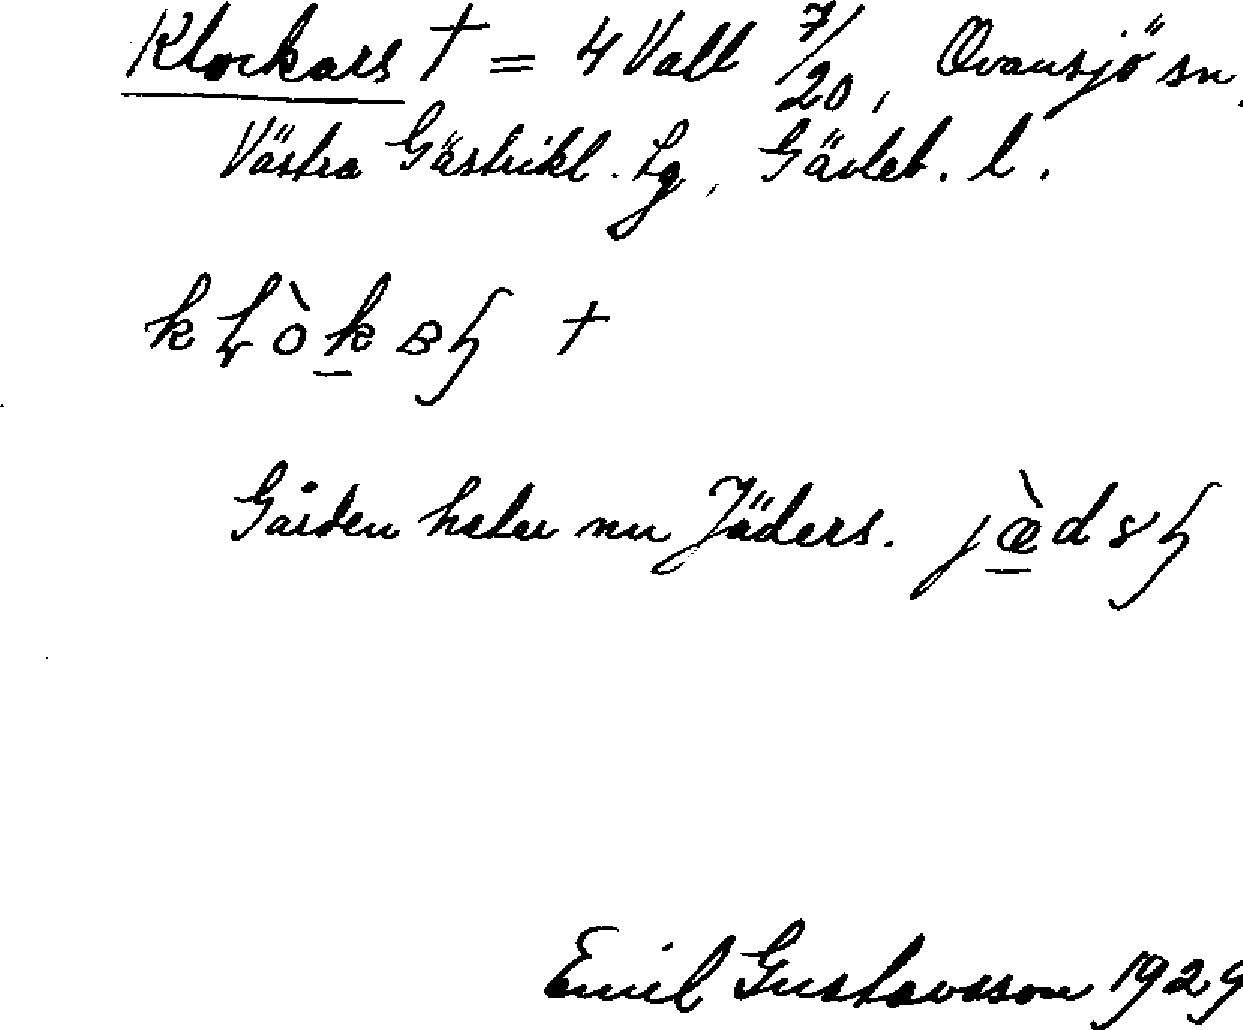 Klockars † = 4 Vall 7/20, Ovansjö sn,
Västra Gästrikl. tg, Gävleb. l.
Gården heter nu Jäders.
Emil Gustavsson 1929